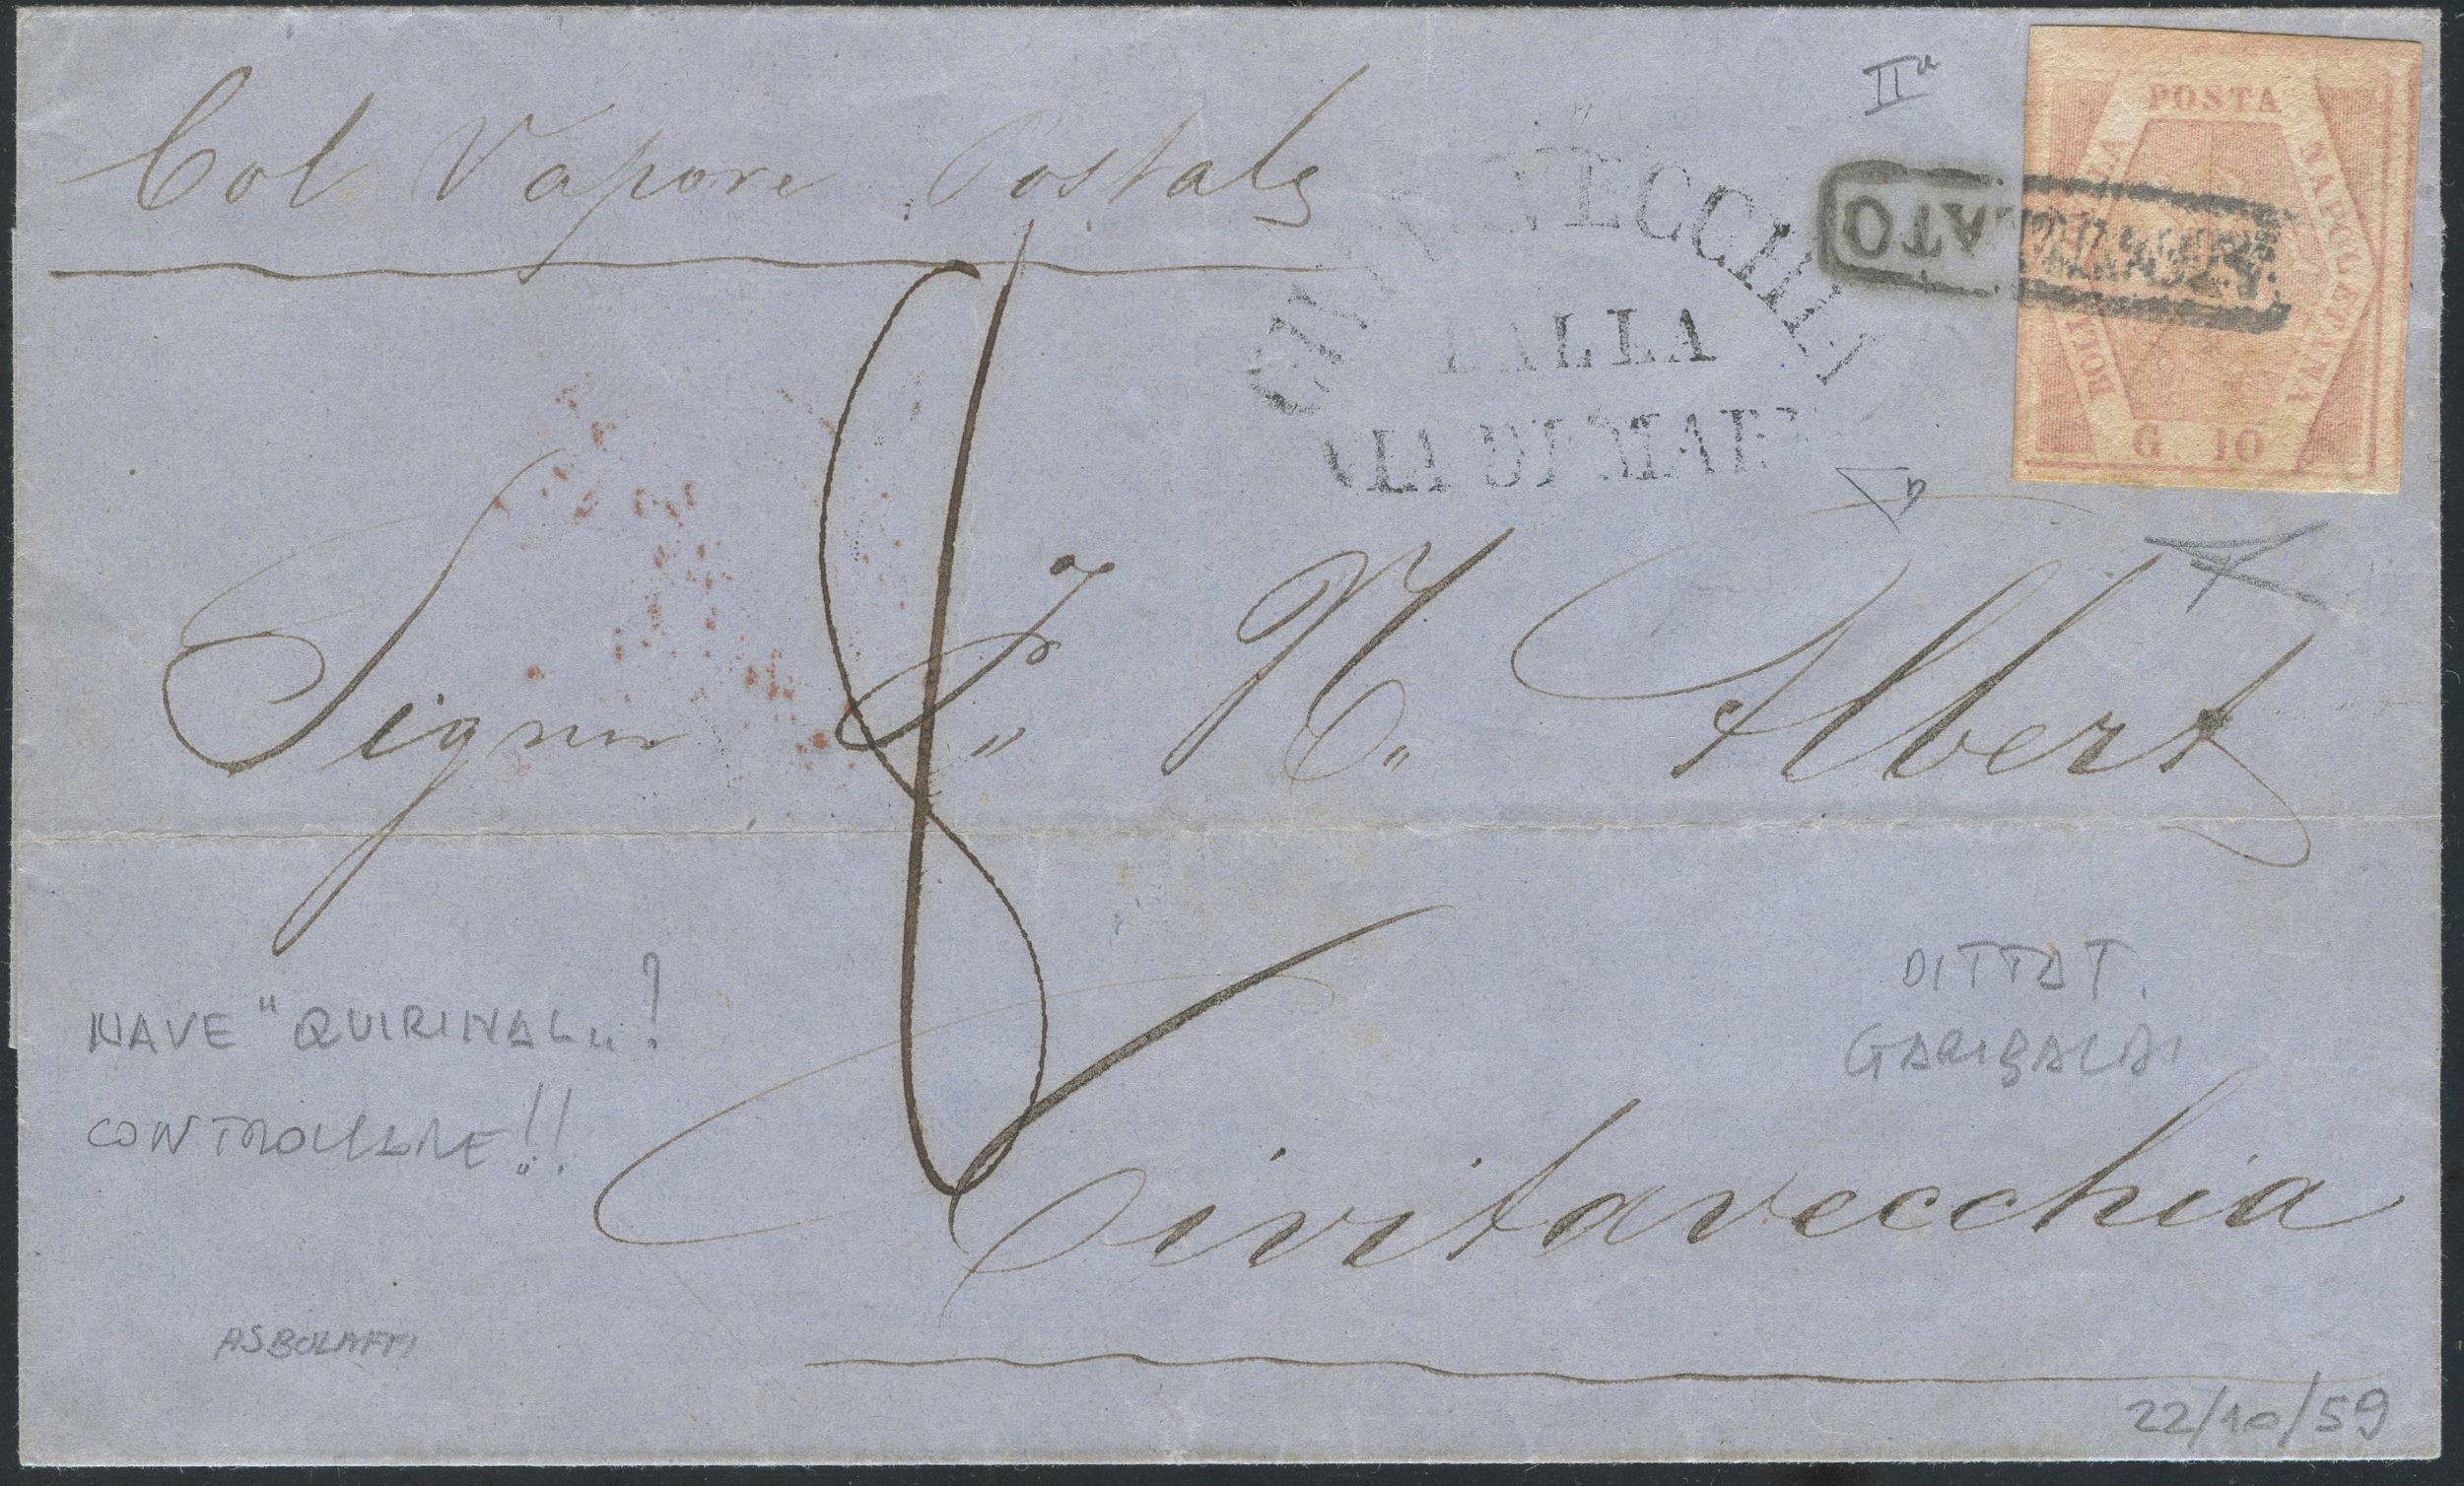 Col Vapore Postale
IIa
POSTA
NAPOLETANA
BOLLA
G 10
ATO
CIVITAVECCHIA
DALLA
VIA DI MARE
Signor F. N. Albert
8
Civitavecchia
NAVE "QUIRINAL"?
CONTROLLARE!!
DITTAT.
GARIBALDI
ASBOLAFFI
22/10/59